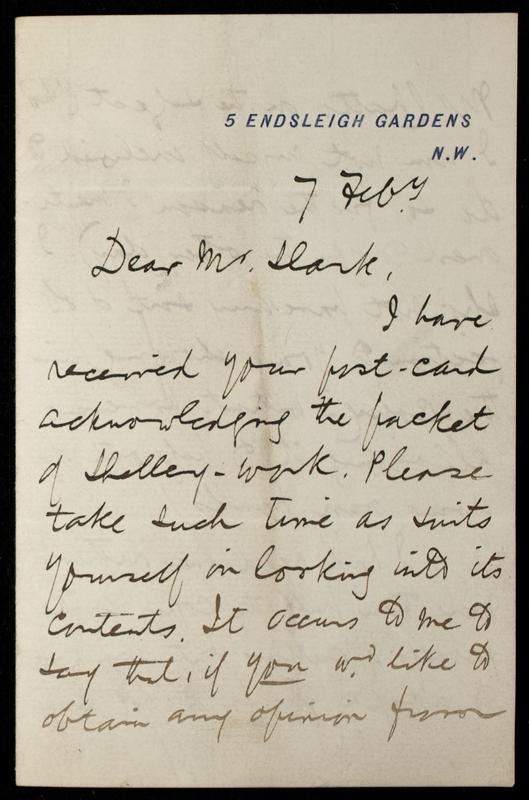 5 ENDSLEIGH GARDENS
N.W.
7 Feby
Dear Mr. Slark,
I have
received your post-card
acknowledging the packet
of Shelley-work. Please
take such time as suits
yourself in looking into its
contents. It occurs to me to
say that, if you wd. like to
obtain any opinion from